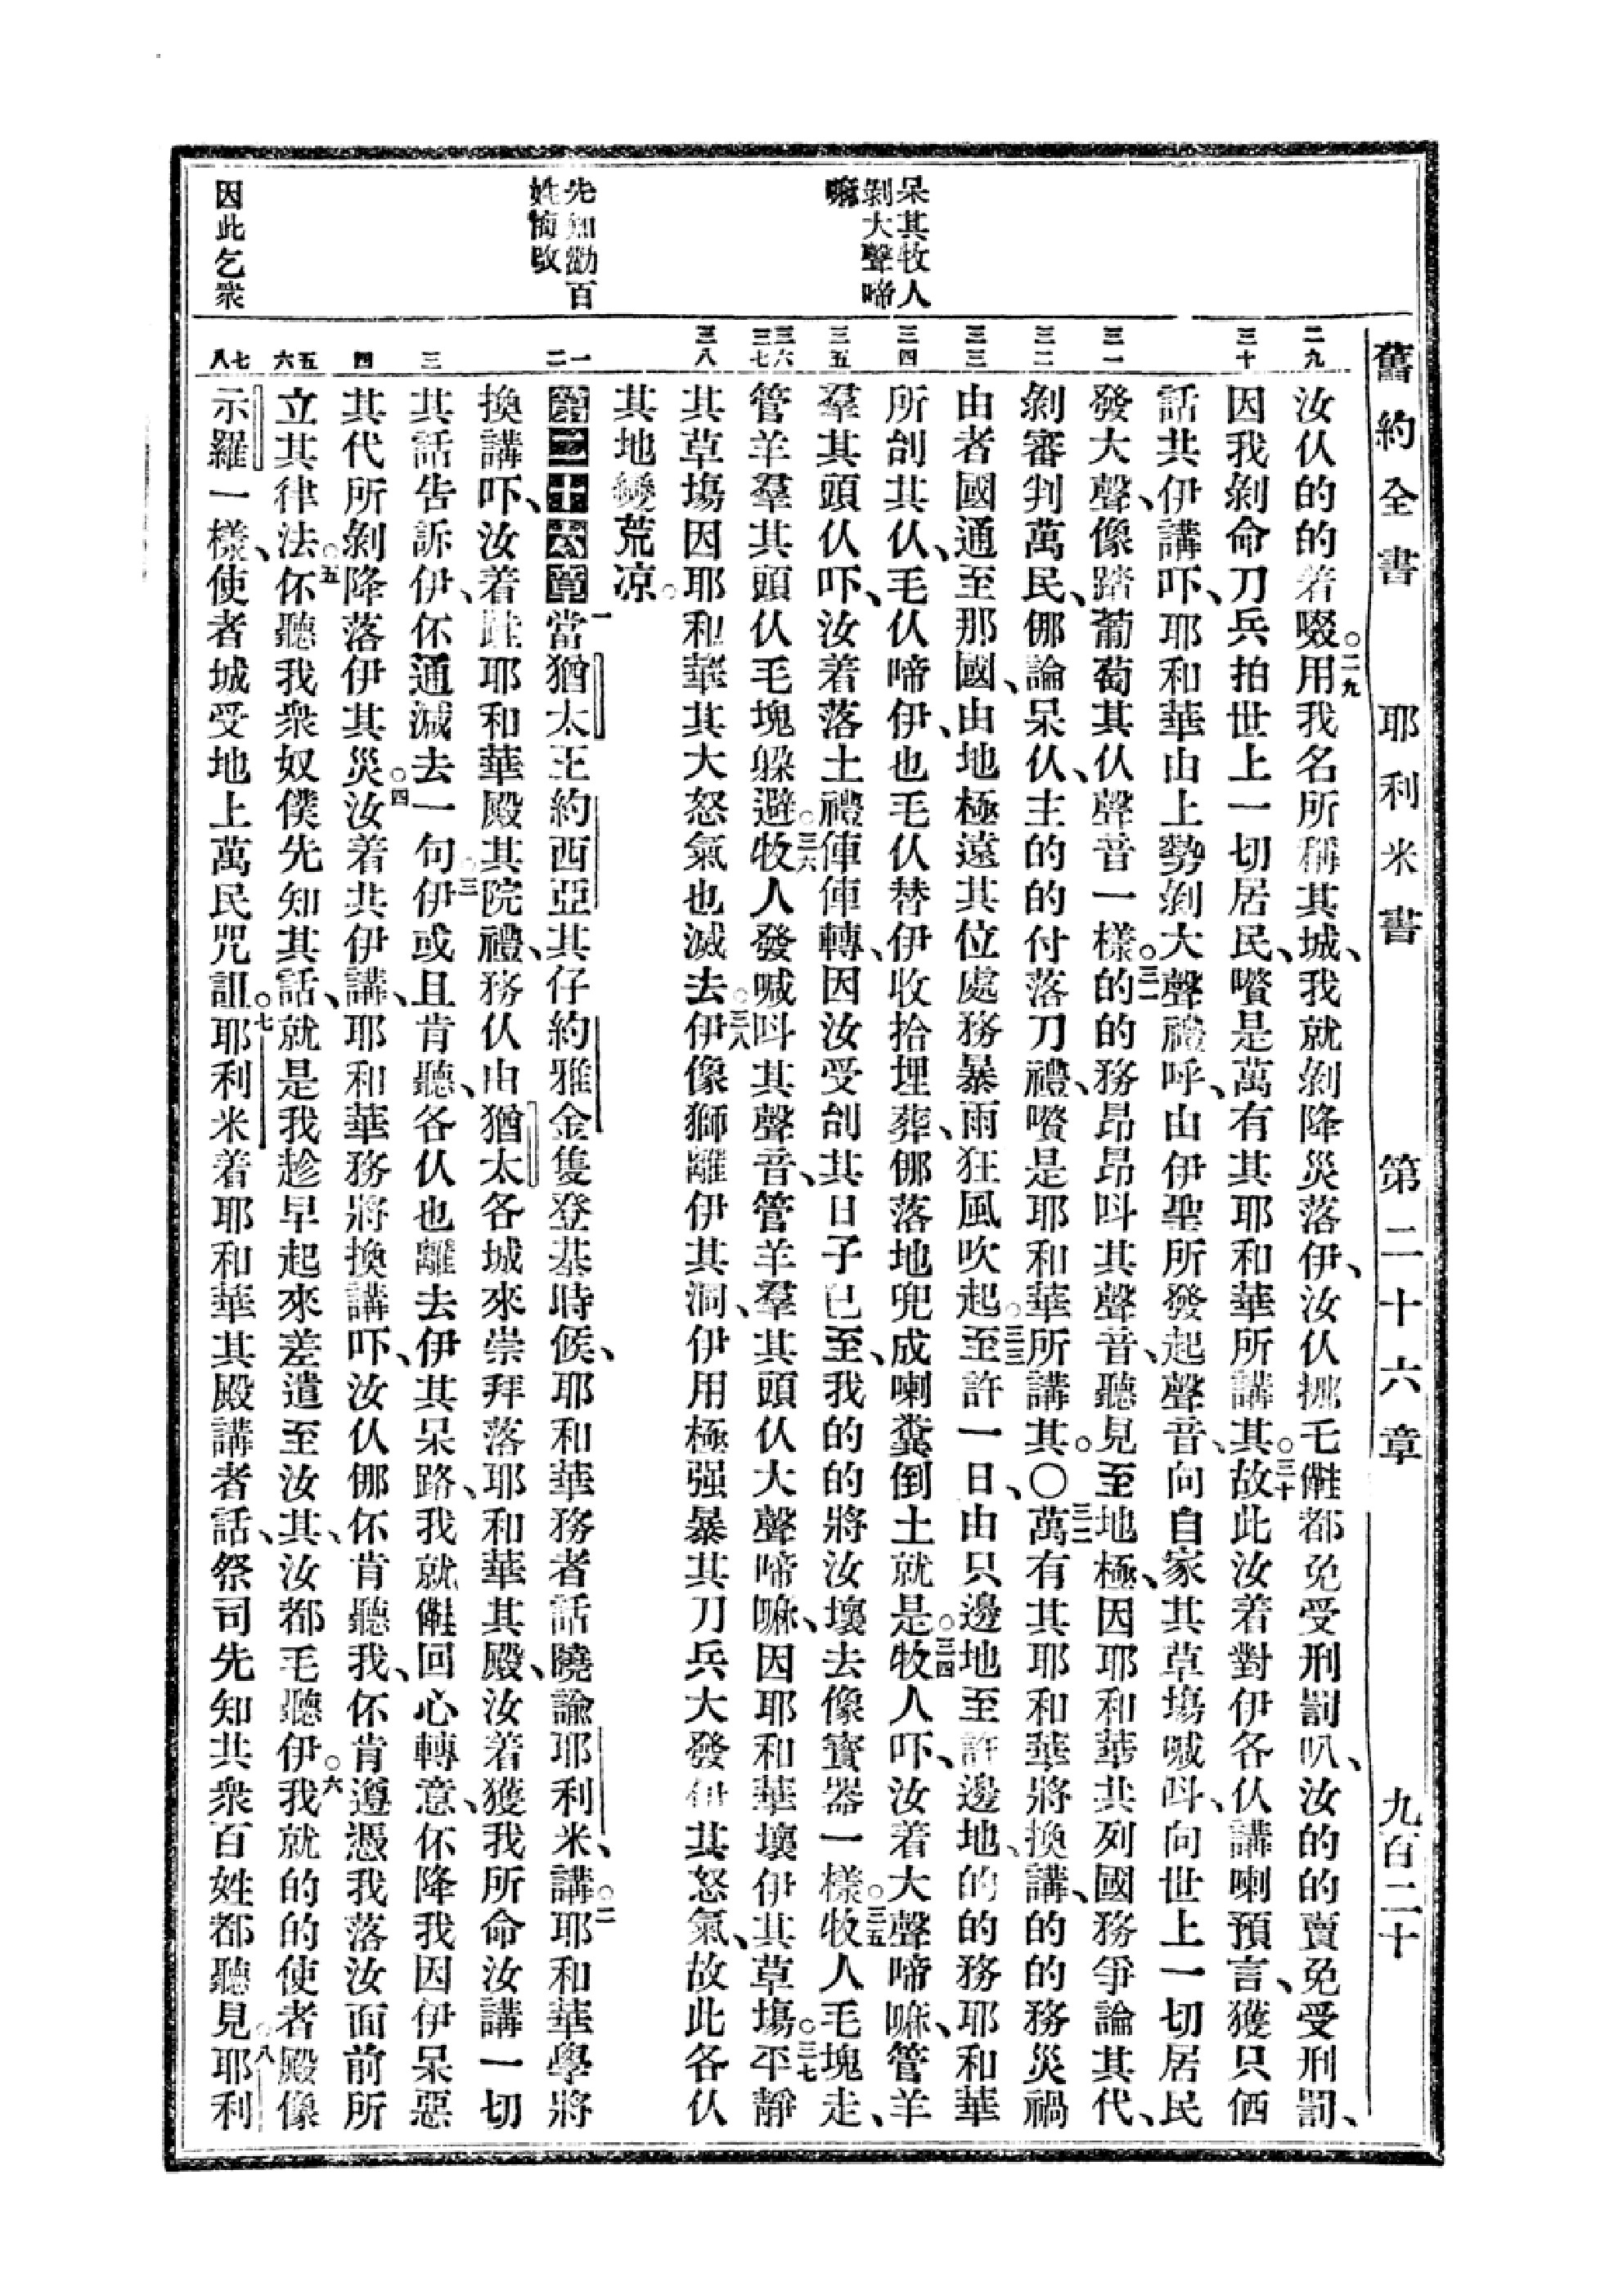 舊約全書　耶利米書　第二十六章　九百二十
呆其牧人
剝大聲啼
嘛
先知勸百
姓悔改
因此乞衆
二九
三十
三一
三二
三三
三四
三五
三六
三七
三八
一
二
三
四
五
六
七
八
汝仸的的着啜。二九用我名所稱其城、我就剝降災落伊、汝仸挪乇㒤都免受刑罰叭、汝的的賣免受刑罰、
因我剝命刀兵拍世上一切居民、嚽是萬有其耶和華所講其。三十故此汝着對伊各仸講喇預言、獲只個
話共伊講吓、耶和華由上勢剝大聲禮呼、由伊聖所發起聲音、向自家其草塲喊呌、向世上一切居民
發大聲、像踏葡萄其仸聲音一樣。三一的的務昂昂呌其聲音、聽見至地極、因耶和華共列國務爭論其代、
剝審判萬民、挪論呆仸、主的的付落刀禮、嚽是耶和華所講其。〇三二萬有其耶和華將換講、的的務災禍
由者國通至那國、由地極遠其位處務暴雨狂風吹起。三三至許一日、由只邊地至許邊地、的的務耶和華
所刣其仸、毛仸啼伊、也毛仸替伊收拾埋葬、挪落地兜成喇糞倒土就是。三四牧人吓、汝着大聲啼嘛、管羊
羣其頭仸吓、汝着落土禮俥俥轉、因汝受刣其日子已至、我的的將汝壞去像寳器一樣。三五牧人毛塊走、
管羊羣其頭仸毛塊躱避。三六牧人發喊呌其聲音、管羊羣其頭仸大聲啼嘛、因耶和華壞伊其草塲。三七平靜
其草塲因耶和華其大怒氣也滅去。三八伊像獅離伊其洞、伊用極强暴其刀兵大發伊其怒氣、故此各仸
其地變荒凉。
第二十六章一當猶太王約西亞其仔約雅金隻登基時候、耶和華務者話曉諭耶利米、講。二耶和華學將
換講吓、汝着跬耶和華殿其院禮、務仸由猶太各城來崇拜落耶和華其殿、汝着獲我所命汝講一切
其話告訴伊、伓通減去一句。三伊或且肯聽、各仸也離去伊其呆路、我就㒤回心轉意、伓降我因伊呆惡
其代所剝降落伊其災。四汝着共伊講、耶和華務將換講吓、汝仸挪伓肯聽我、伓肯遵憑我落汝面前所
立其律法。五伓聽我衆奴僕先知其話、就是我趁早起來差遣至汝其、汝都毛聽伊。六我就的的使者殿像
示羅一樣、使者城受地上萬民咒詛。七耶利米着耶和華其殿講者話、祭司先知共衆百姓都聽見。八耶利